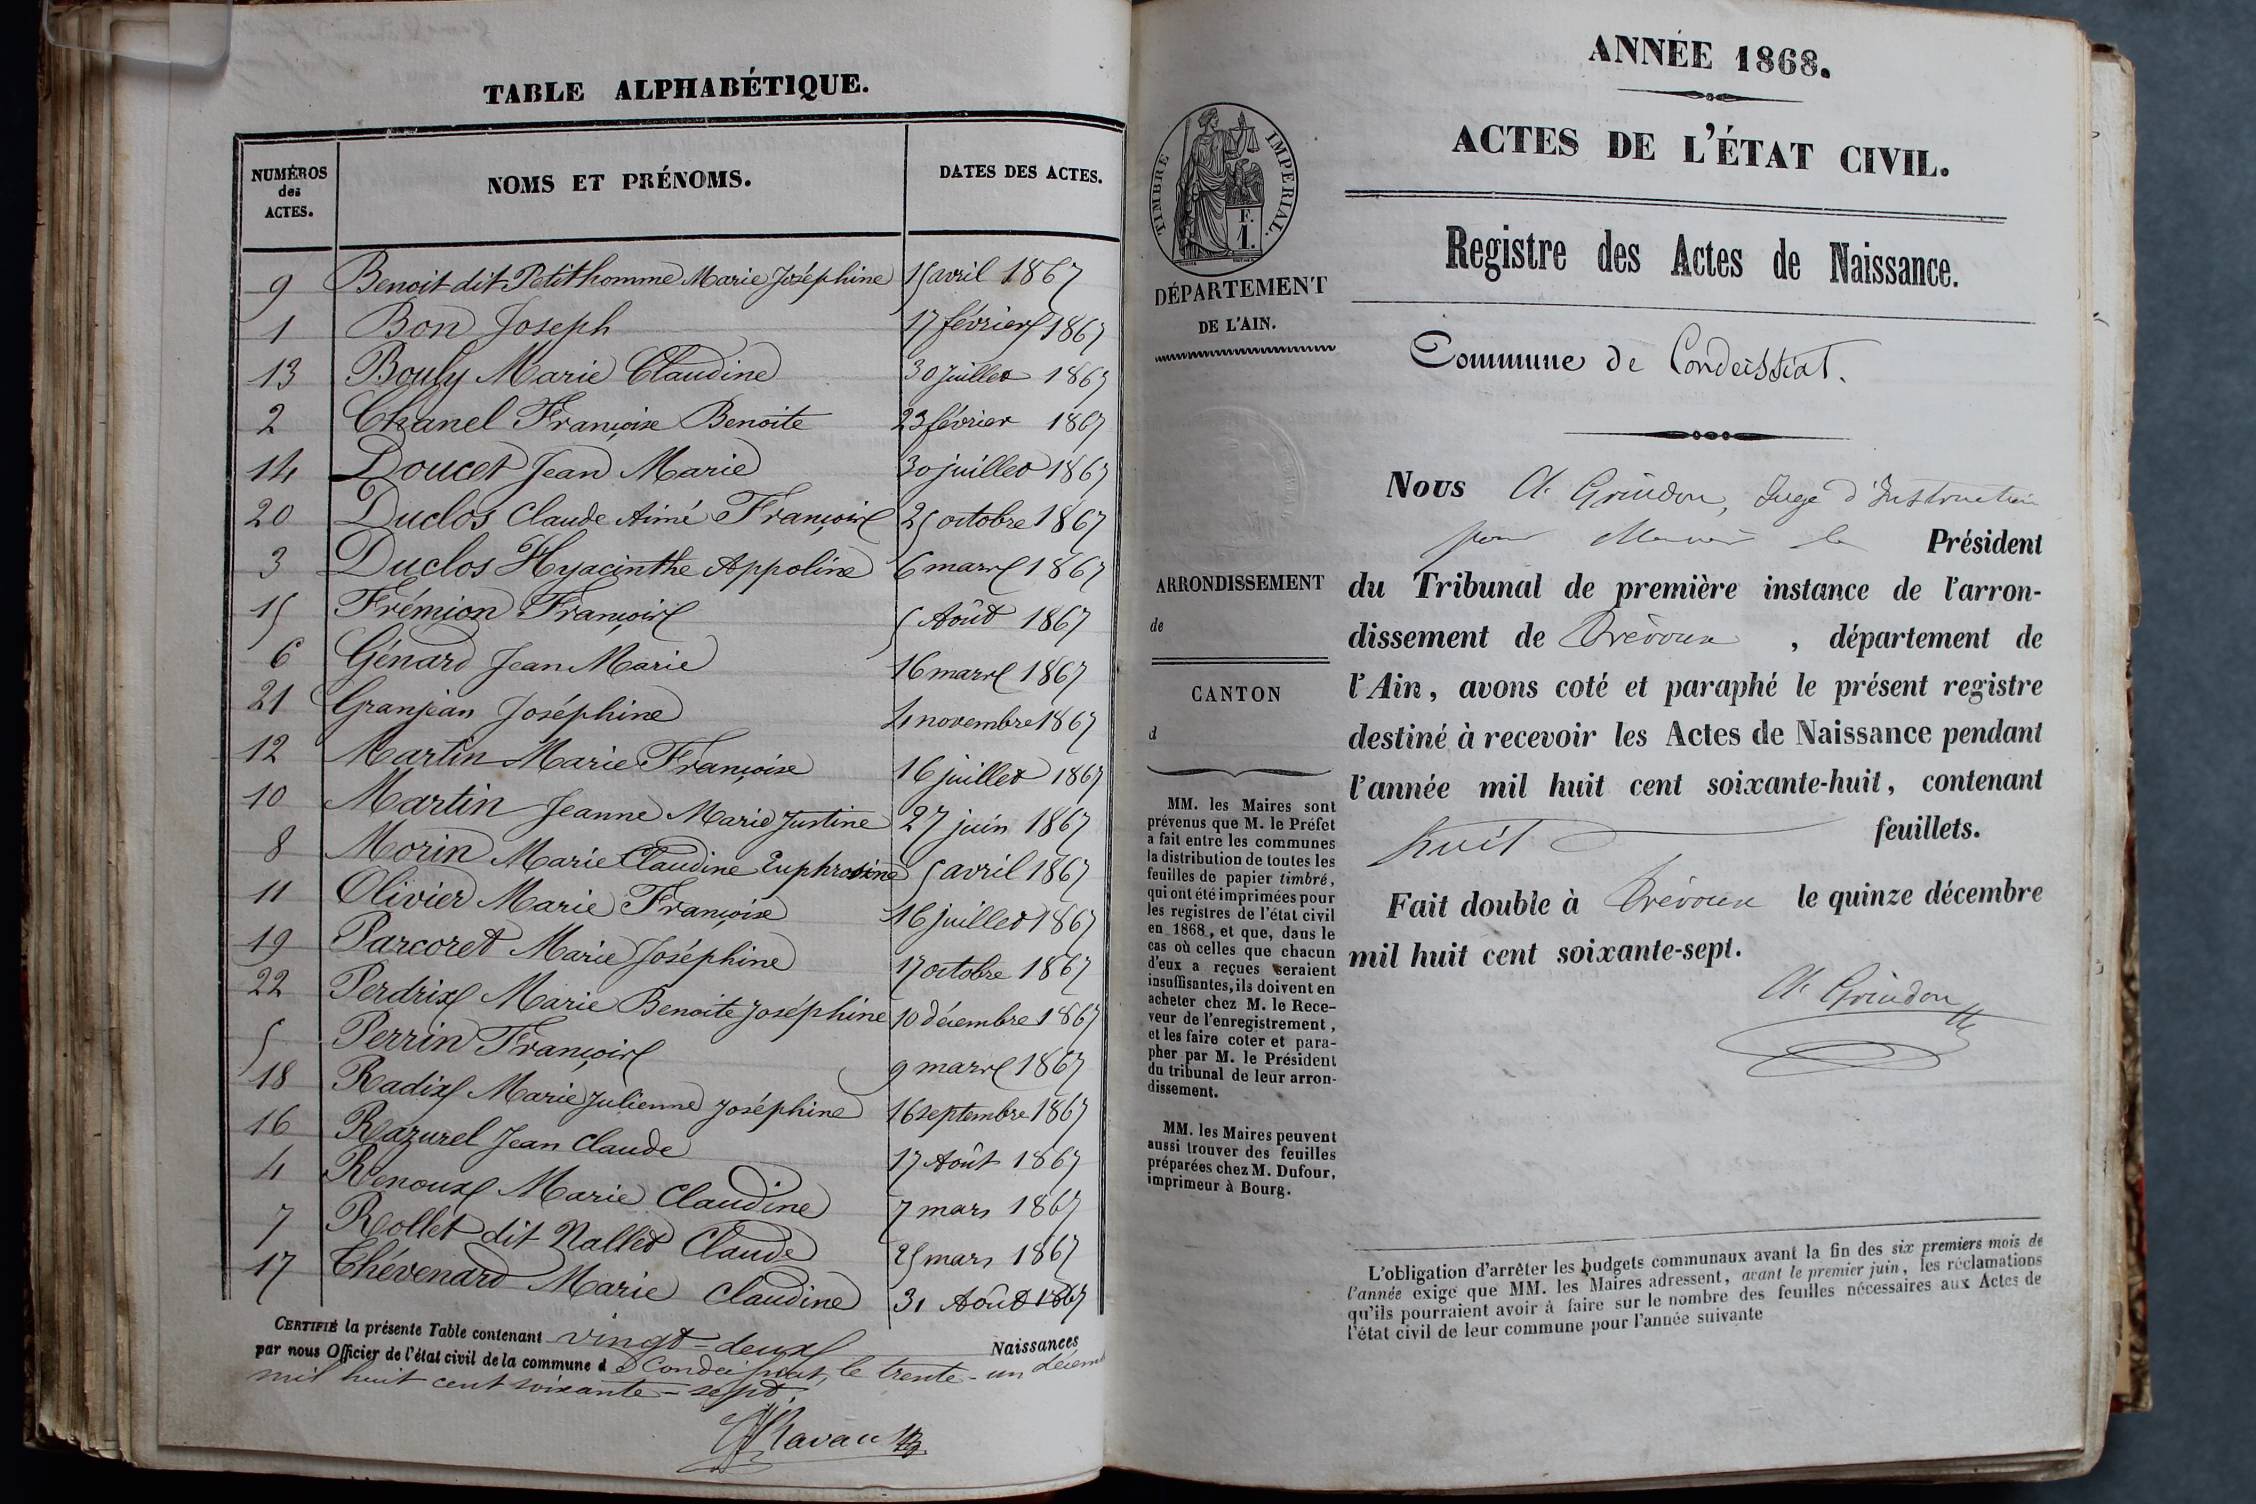 TABLE ALPHABÉTIQUE.
NUMÉROS des ACTES.
NOMS ET PRÉNOMS.
DATES DES ACTES.
9 Benoit dit Petithomme Marie Joséphine 15 avril 1867
1 Bon Joseph 17 février 1867
13 Bouly Marie Claudine 30 juillet 1867
2 Chanel Françoise Benoite 23 février 1867
14 Doucet Jean Marie 30 juillet 1867
20 Duclos Claude Aimé François 25 octobre 1867
3 Duclos Hyacinthe Appoline 6 mars 1867
15 Frémion François 5 Août 1867
6 Génard Jean Marie 16 mars 1867
21 Granjean Joséphine 4 novembre 1867
12 Martin Marie Françoise 16 juillet 1867
10 Martin Jeanne Marie Justine 27 juin 1867
8 Morin Marie Claudine Euphrosine 5 avril 1867
11 Olivier Marie Françoise 16 juillet 1867
19 Parcoret Marie Joséphine 17 octobre 1867
22 Perdrix Marie Benoite Joséphine 10 décembre 1867
5 Perrin François 9 mars 1867
18 Radix Marie Julienne Joséphine 16 septembre 1867
16 Razurel Jean Claude 17 Août 1867
4 Renoux Marie Claudine 7 mars 1867
7 Rollet dit Nallet Claude 25 mars 1867
17 Thévenard Marie Claudine 31 Août 1867
CERTIFIÉ la présente Table contenant vingt-deux Naissances
par nous Officier de l'état civil de la commune de Condeissiat, le trente-un décem
mil huit cent soixante-sept.
ANNÉE 1868.
ACTES DE L'ÉTAT CIVIL.
TIMBRE IMPERIAL.
F.
1.
DÉPARTEMENT
DE L'AIN.
ARRONDISSEMENT
de
CANTON
d
MM. les Maires sont
prévenus que M. le Préfet
a fait entre les communes
la distribution de toutes les
feuilles de papier timbré,
qui ont été imprimées pour
les registres de l'état civil
en 1868, et que, dans le
cas où celles que chacun
d'eux a reçues seraient
insuffisantes, ils doivent en
acheter chez M. le Rece-
veur de l'enregistrement,
et les faire coter et para-
pher par M. le Président
du tribunal de leur arron-
dissement.
MM. les Maires peuvent
aussi trouver des feuilles
préparées chez M. Dufour,
imprimeur à Bourg.
Registre des Actes de Naissance.
Commune de Condeissiat.
Nous Ch. Grindon, Juge d'Instruction
pour Monsieur le Président
du Tribunal de première instance de l'arron-
dissement de Trévoux, département de
l'Ain, avons coté et paraphé le présent registre
destiné à recevoir les Actes de Naissance pendant
l'année mil huit cent soixante-huit, contenant
huit feuillets.
Fait double à Trévoux le quinze décembre
mil huit cent soixante-sept.
Ch. Grindon
L'obligation d'arrêter les budgets communaux avant la fin des six premiers mois de
l'année exige que MM. les Maires adressent, avant le premier juin, les réclamations
qu'ils pourraient avoir à faire sur le nombre des feuilles nécessaires aux Actes de
l'état civil de leur commune pour l'année suivante